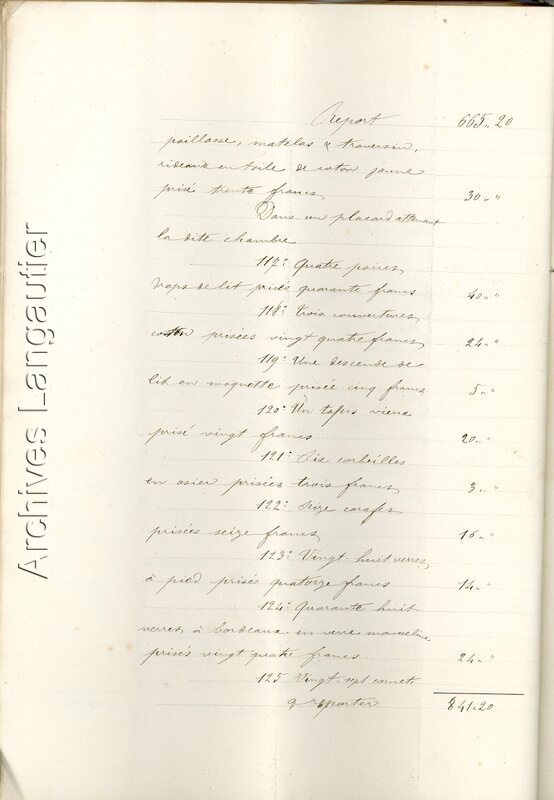 Report 665..20
paillasse, matelas & traversin,
rideaux en toile de coton jaune
prisé trente francs 30.. "
Dans un placard attenant
la dite chambre
117° Quatre paires
draps de lit prisés quarante francs 40.. "
118° trois couvertures
coton prisées vingt quatre francs 24.. "
119° Une descende de
lit en moquette prisée cinq francs 5.. "
120° Un tapis vieux
prisé vingt francs 20.. "
121° Six corbeilles
en osier prisées trois francs 3.. "
122° Seize carafes
prisées seize francs 16.. "
123° Vingt huit verres
à pied prisés quatorze francs 14.. "
124° Quarante huit
verres à bordeaux en verre mousseline
prisés vingt quatre francs 24.. "
125 Vingt-sept cornets
à reporter 841..20
Archives Langautier